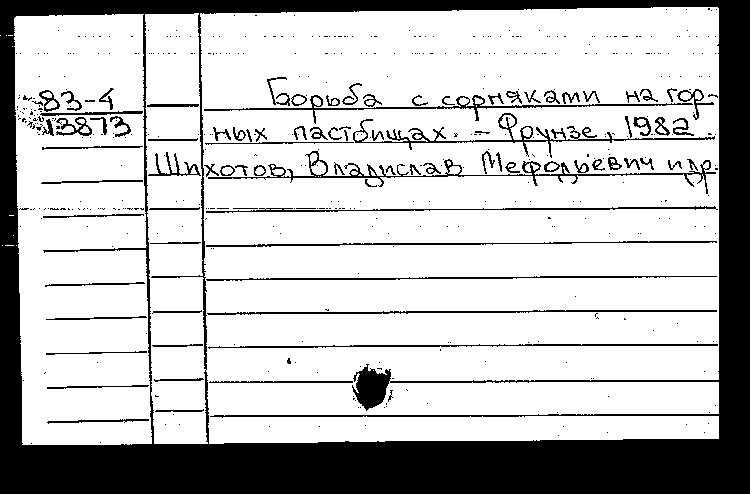 83-4
13873
Борьба с сорняками на гор-
ных пастбищах. - Фрунзе, 1982.
Шихотов, Владислав Мефодьевич и др.